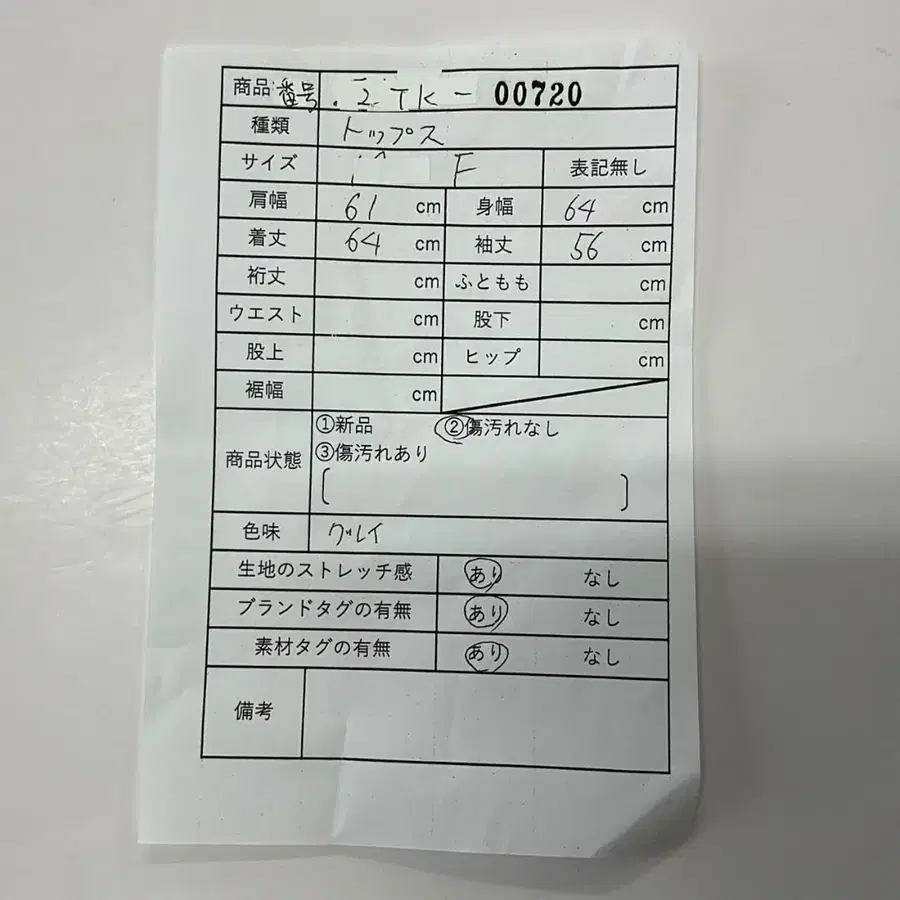 商品番号 .2TK- 00720
種類 トップス
サイズ F 表記無し
肩幅 61 cm 身幅 64 cm
着丈 64 cm 袖丈 56 cm
裄丈 cm ふともも cm
ウエスト cm 股下 cm
股上 cm ヒップ cm
裾幅 cm
①新品 ②傷汚れなし
商品状態 ③傷汚れあり
[ ]
色味 グレイ
生地のストレッチ感 あり なし
ブランドタグの有無 あり なし
素材タグの有無 あり なし
備考